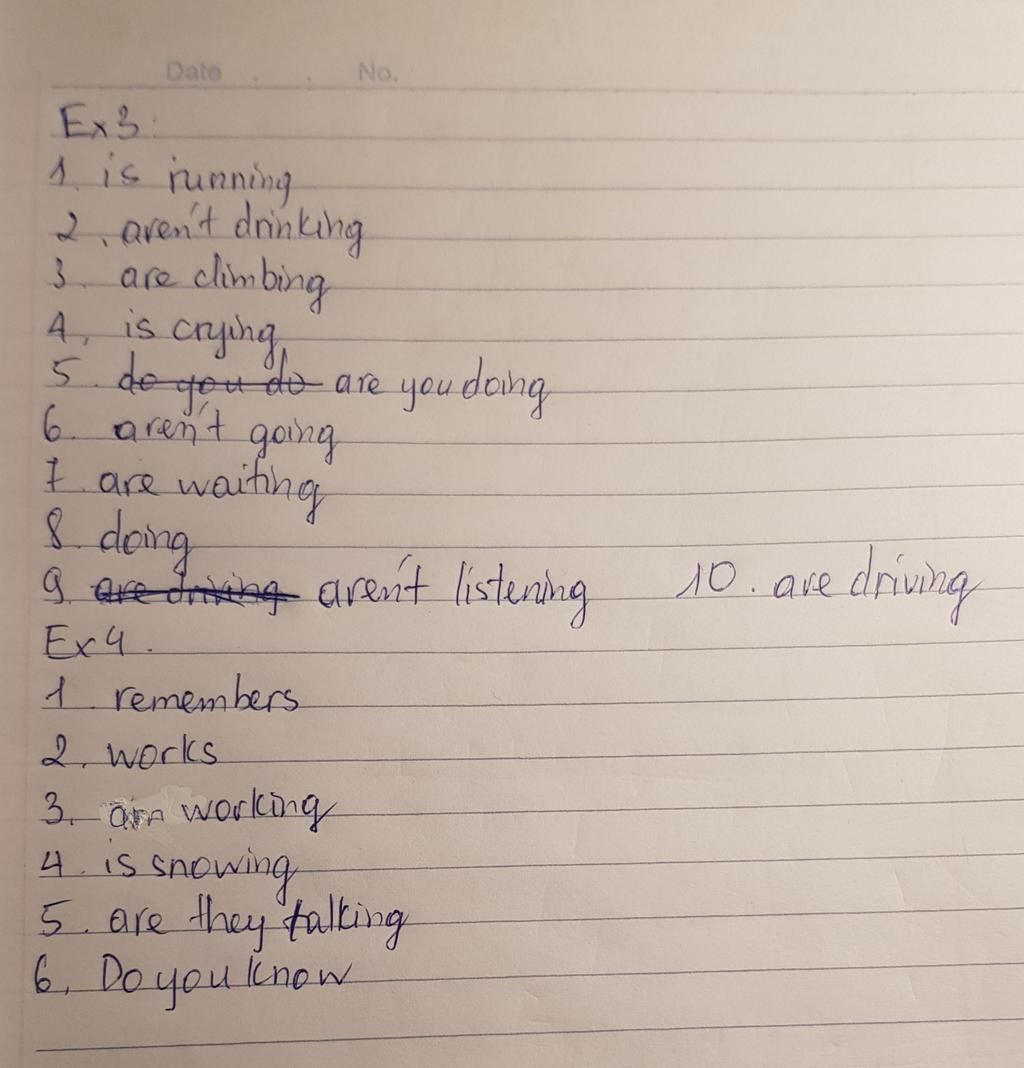 Date . . No.
Ex3:
1. is running
2. aren't drinking
3. are climbing
4. is crying
5. do you do are you doing
6. aren't going
7. are waiting
8. doing
9. are driving aren't listening 10. are driving
Ex4.
1 remembers
2. works
3. am working
4. is snowing
5. are they talking
6. Do you know